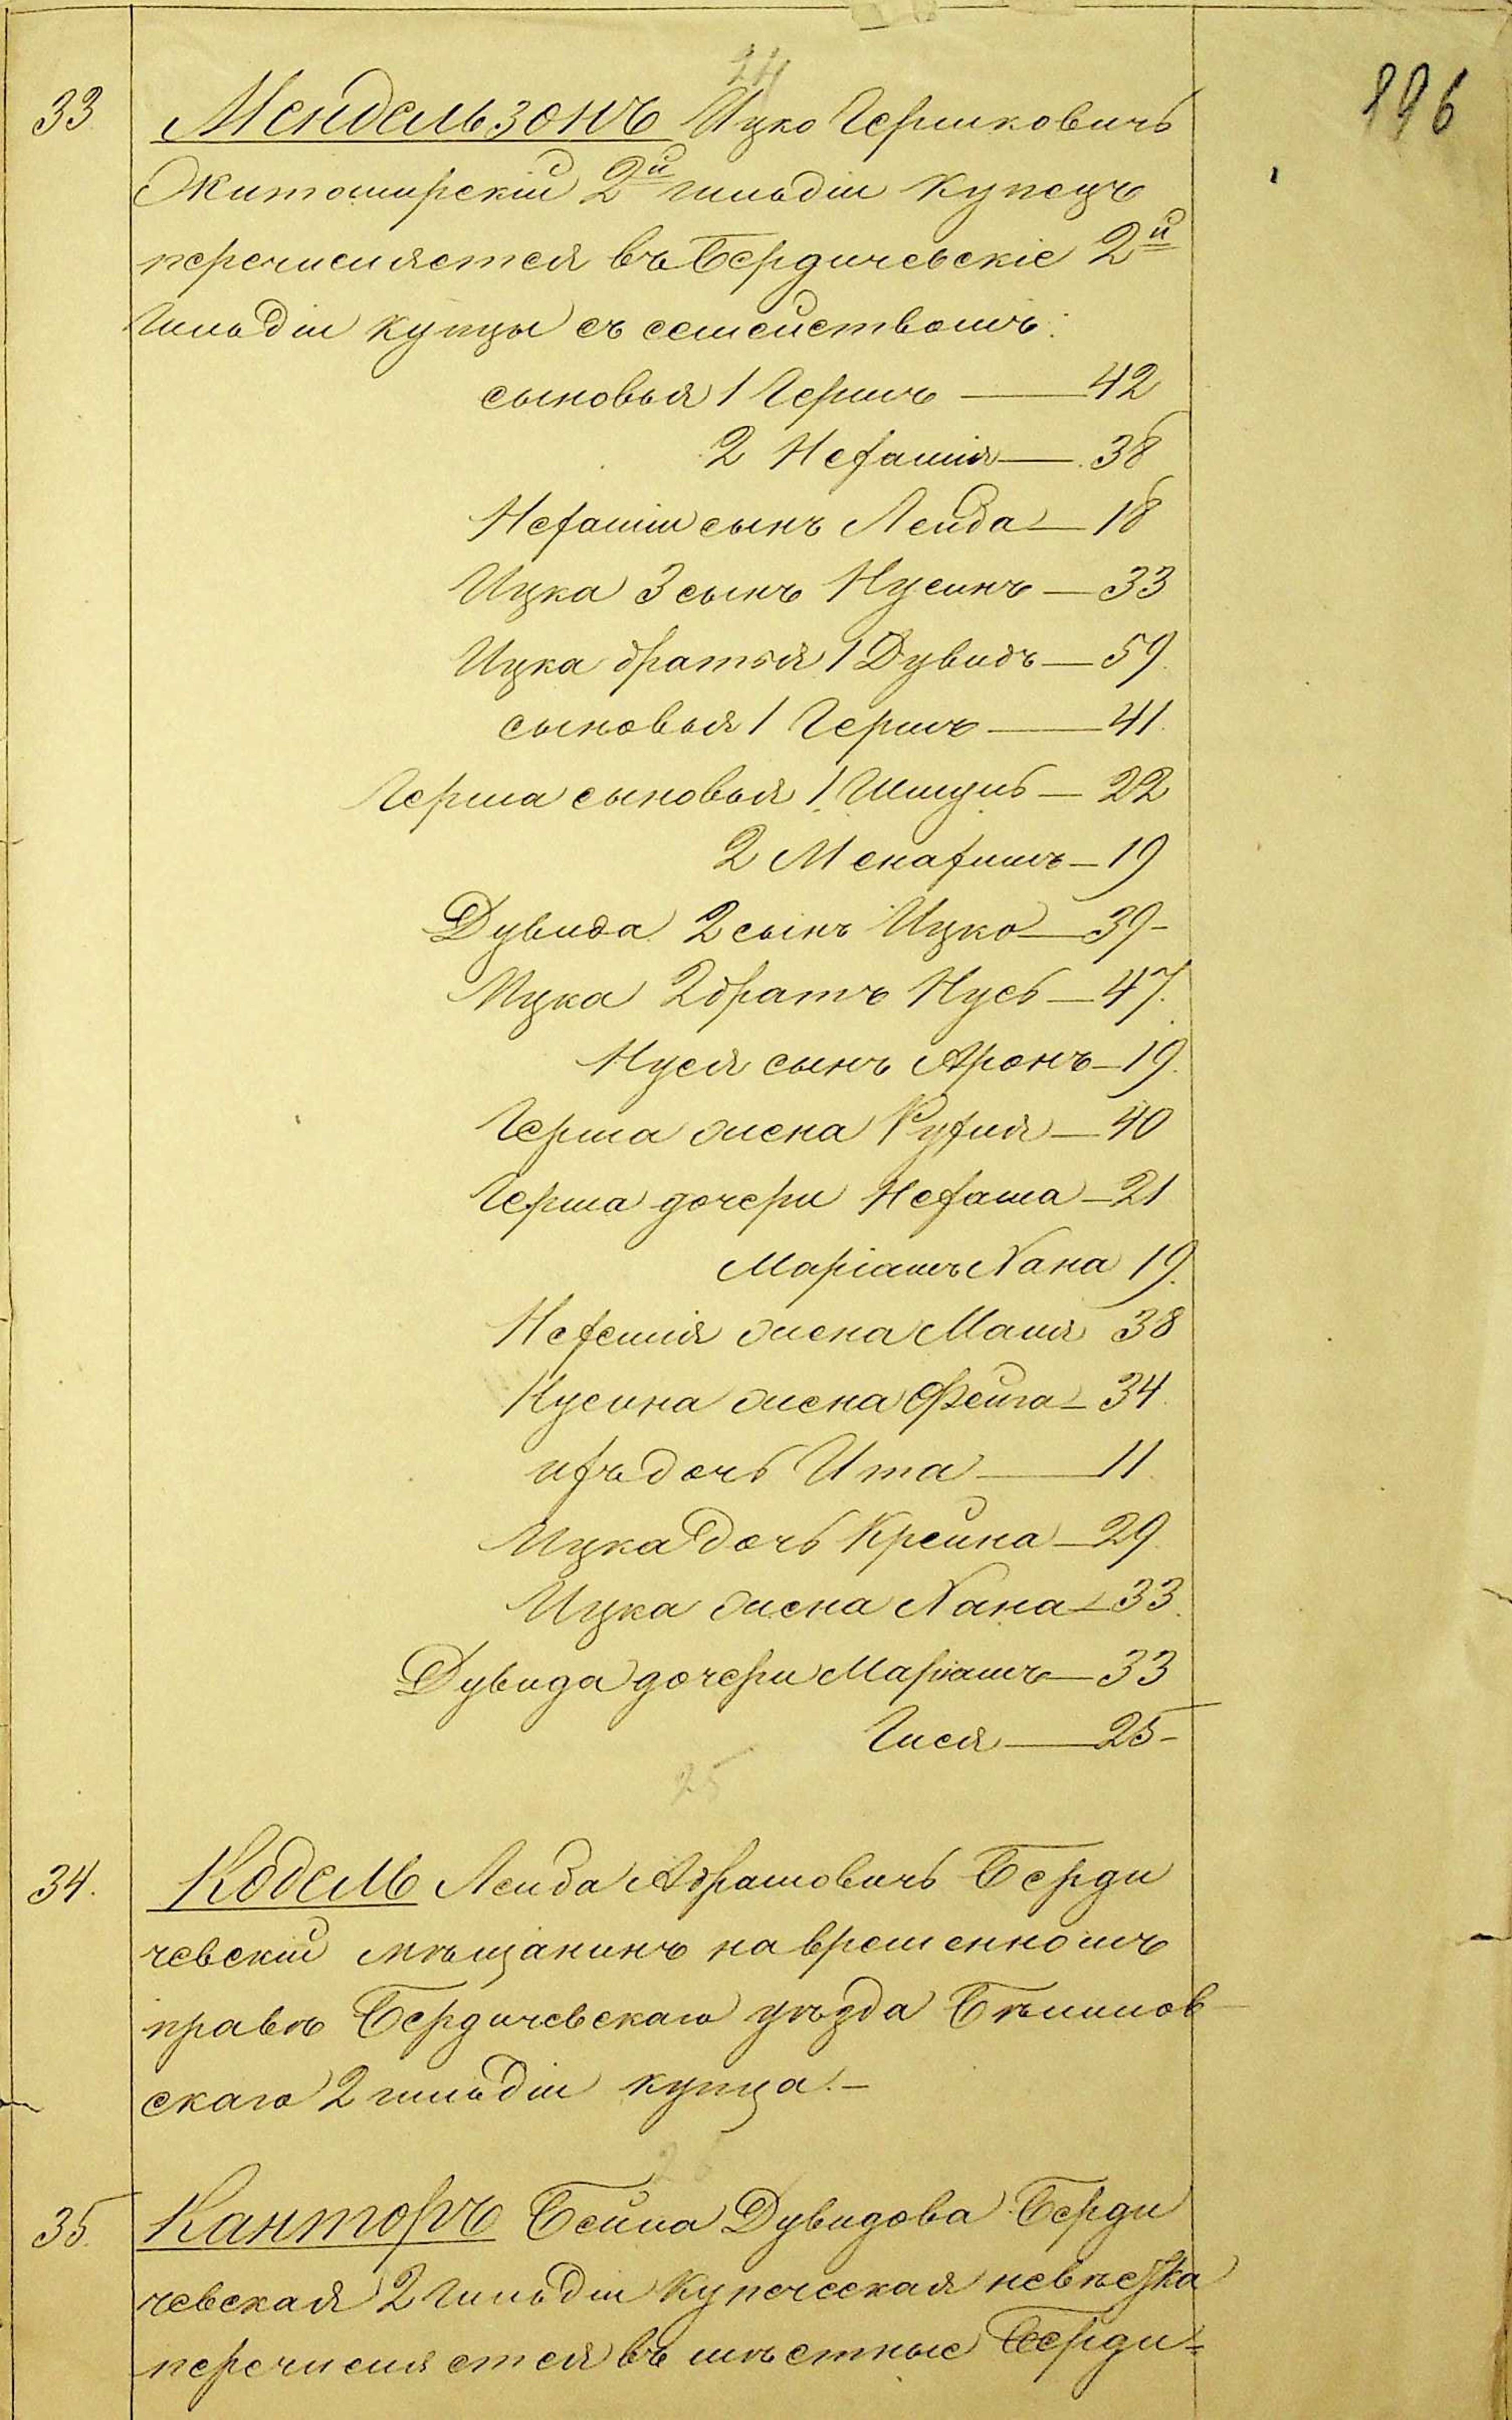 24
896
33 Мендельзонъ Ицко Гершковичъ
Житомирскій 2й гильдіи купецъ
перечисляется въ Бердичевскіе 2й
гильдіи купцы съ семействомъ:
сыновья 1 Гершъ — 42
2 Нехамія — 38
Нехаміи сынъ Лейба — 18
Ицка 3 сынъ Нусинъ — 33
Ицка братья 1 Дувидъ — 59
сыновья 1 Гершъ — 41
Герша сыновья 1 Шмуль — 22
2 Менахимъ — 19
Дувида 2 сынъ Ицко — 39
Ицка 2 братъ Нусь — 47
Нуся сынъ Аронъ — 19
Герша жена Рухля — 40
Герша дочери Нехама — 21
Маріамъ Хана 19
Нехемія жена Маля 38
Нусина жена Фейга — 34
ихъ дочь Ита — 11
Ицка дочь Крейна — 29
Ицка жена Хана — 33
Дувида дочери Маріамъ — 33
Гися — 25
25
34. Кодель Лейба Абрамовичъ Берди
чевскій мѣщанинъ на временномъ
правѣ Бердичевскаго уѣзда Бѣлилов
скаго 2 гильдіи купца.—
35. Канторъ Бейла Дувидова Берди
чевская 2 гильдіи купеческая невѣстка
перечисляется въ мѣстные Берди-